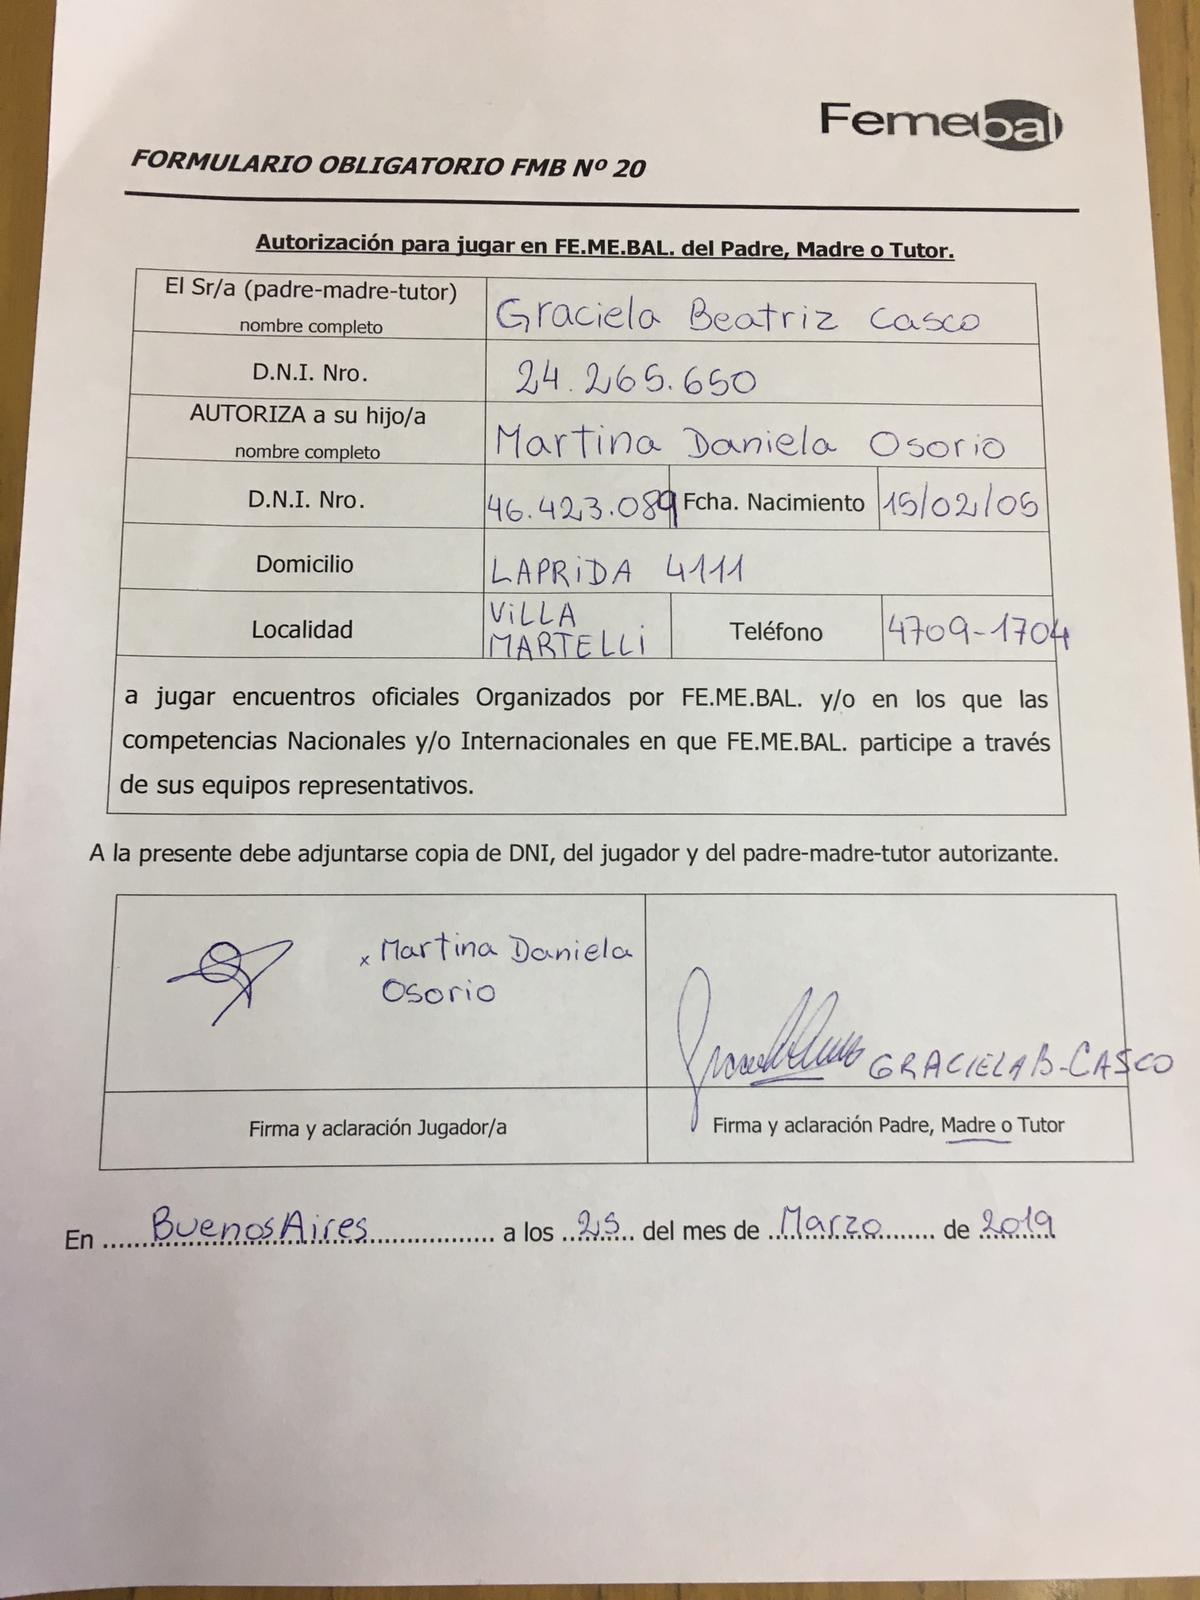 Femebal
FORMULARIO OBLIGATORIO FMB Nº 20
Autorización para jugar en FE.ME.BAL. del Padre, Madre o Tutor.
El Sr/a (padre-madre-tutor)
nombre completo
Graciela Beatriz Casco
D.N.I. Nro.
24.265.650
AUTORIZA a su hijo/a
nombre completo
Martina Daniela Osorio
D.N.I. Nro.
46.423.089
Fcha. Nacimiento
15/02/05
Domicilio
LAPRiDA 4111
Localidad
ViLLA
MARTELLi
Teléfono
4709-1704
a jugar encuentros oficiales Organizados por FE.ME.BAL. y/o en los que las
competencias Nacionales y/o Internacionales en que FE.ME.BAL. participe a través
de sus equipos representativos.
A la presente debe adjuntarse copia de DNI, del jugador y del padre-madre-tutor autorizante.
x Martina Daniela
Osorio
GRACIELA B-CASCO
Firma y aclaración Jugador/a
Firma y aclaración Padre, Madre o Tutor
En Buenos Aires a los 25 del mes de Marzo de 2019